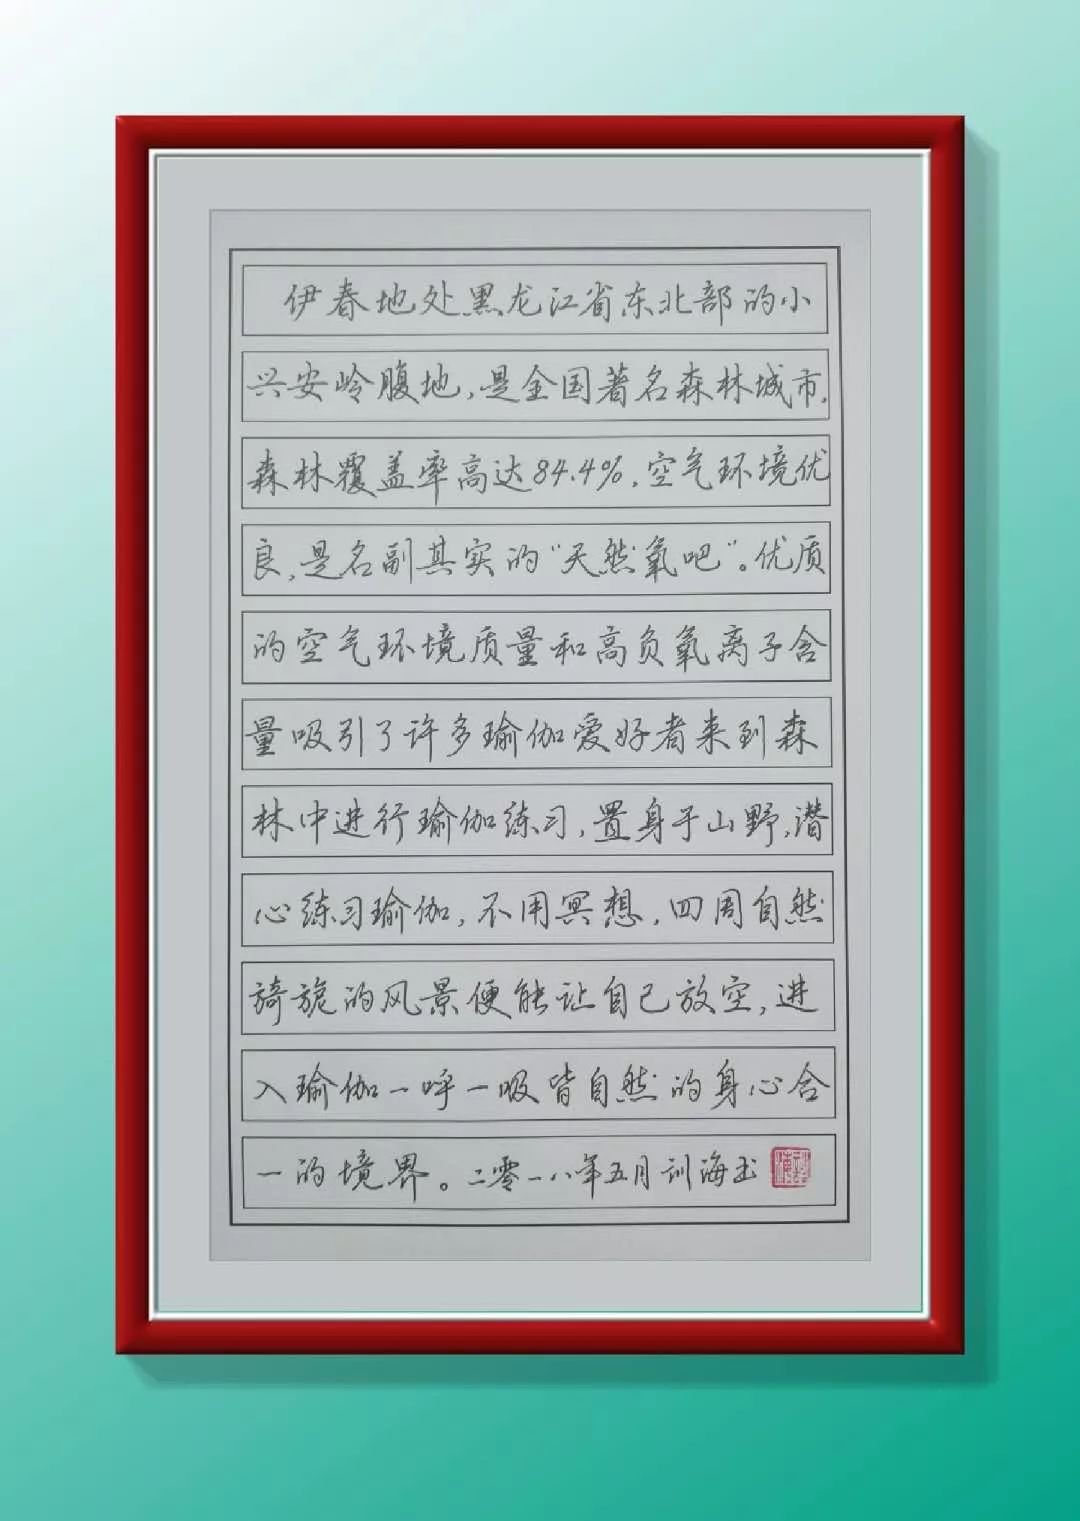 伊春地处黑龙江省东北部的小
兴安岭腹地,是全国著名森林城市,
森林覆盖率高达84.4%,空气环境优
良,是名副其实的“天然氧吧”。优质
的空气环境质量和高负氧离子含
量吸引了许多瑜伽爱好者来到森
林中进行瑜伽练习,置身于山野,潜
心练习瑜伽,不用冥想,四周自然
旖旎的风景便能让自己放空,进
入瑜伽一呼一吸皆自然的身心合
一的境界。二零一八年五月训海书